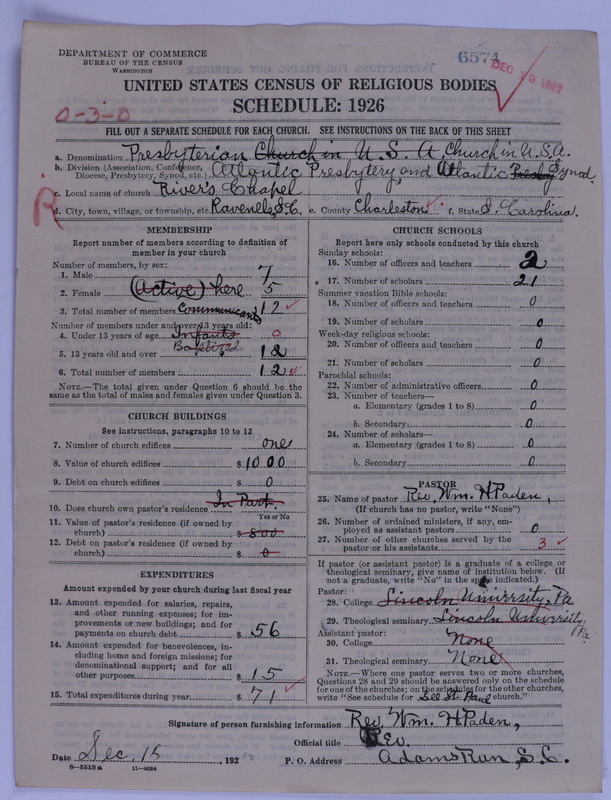 DEPARTMENT OF COMMERCE
BUREAU OF THE CENSUS
WASHINGTON
6574
DEC 19 1927
UNITED STATES CENSUS OF RELIGIOUS BODIES
SCHEDULE: 1926
0-3-0
FILL OUT A SEPARATE SCHEDULE FOR EACH CHURCH. SEE INSTRUCTIONS ON THE BACK OF THIS SHEET
a. Denomination Presbyterian Church in U. S. A. Church in U.S.A.
b. Division (Association, Conference, Diocese, Presbytery, Synod, etc.) Atlantic Presbytery and Atlantic Synod.
c. Local name of church River's Chapel
R
d. City, town, village, or township, etc. Ravenells, S.C. e. County Charleston f. State S. Carolina.
MEMBERSHIP
Report number of members according to definition of
member in your church
Number of members by sex:
1. Male 7
2. Female (Active) here 5
3. Total number of members Communicants 12
Number of members under and over 13 years old:
4. Under 13 years of age Infants 0
Baptized
5. 13 years old and over 12
6. Total number of members 12
NOTE.—The total given under Question 6 should be the
same as the total of males and females given under Question 3.
CHURCH BUILDINGS
See instructions, paragraphs 10 to 12
7. Number of church edifices one
8. Value of church edifices $ 1000
9. Debt on church edifices $ 0
10. Does church own pastor's residence In Part.
Yes or No
11. Value of pastor's residence (if owned by
church) $ 800
12. Debt on pastor's residence (if owned by
church) $ 0
EXPENDITURES
Amount expended by your church during last fiscal year
13. Amount expended for salaries, repairs,
and other running expenses; for im-
provements or new buildings; and for
payments on church debt $ 56
14. Amount expended for benevolences, in-
cluding home and foreign missions; for
denominational support; and for all
other purposes $ 15
15. Total expenditures during year $ 71
CHURCH SCHOOLS
Report here only schools conducted by this church
Sunday schools:
16. Number of officers and teachers 2
17. Number of scholars 21
Summer vacation Bible schools:
18. Number of officers and teachers 0
19. Number of scholars 0
Week-day religious schools:
20. Number of officers and teachers 0
21. Number of scholars 0
Parochial schools:
22. Number of administrative officers 0
23. Number of teachers—
a. Elementary (grades 1 to 8) 0
b. Secondary 0
24. Number of scholars—
a. Elementary (grades 1 to 8) 0
b. Secondary 0
PASTOR
25. Name of pastor Rev. Wm. H. Paden,
(If church has no pastor, write "None")
26. Number of ordained ministers, if any, em-
ployed as assistant pastors 0
27. Number of other churches served by the
pastor or his assistants 3
If pastor (or assistant pastor) is a graduate of a college or
theological seminary, give name of institution below. (If
not a graduate, write "No" in the space indicated.)
Pastor:
28. College Lincoln University, Pa
29. Theological seminary Lincoln University Pa
Assistant pastor:
30. College None
31. Theological seminary None
NOTE.—Where one pastor serves two or more churches,
Questions 28 and 29 should be answered only on the schedule
for one of the churches; on the schedules for the other churches,
write "See schedule for See St. Paul church."
Signature of person furnishing information Rev. Wm. H. Paden,
Official title Rev.
Date Dec. 15, 192
P. O. Address Adams Run, S.C.
8—5518 a 11—9094